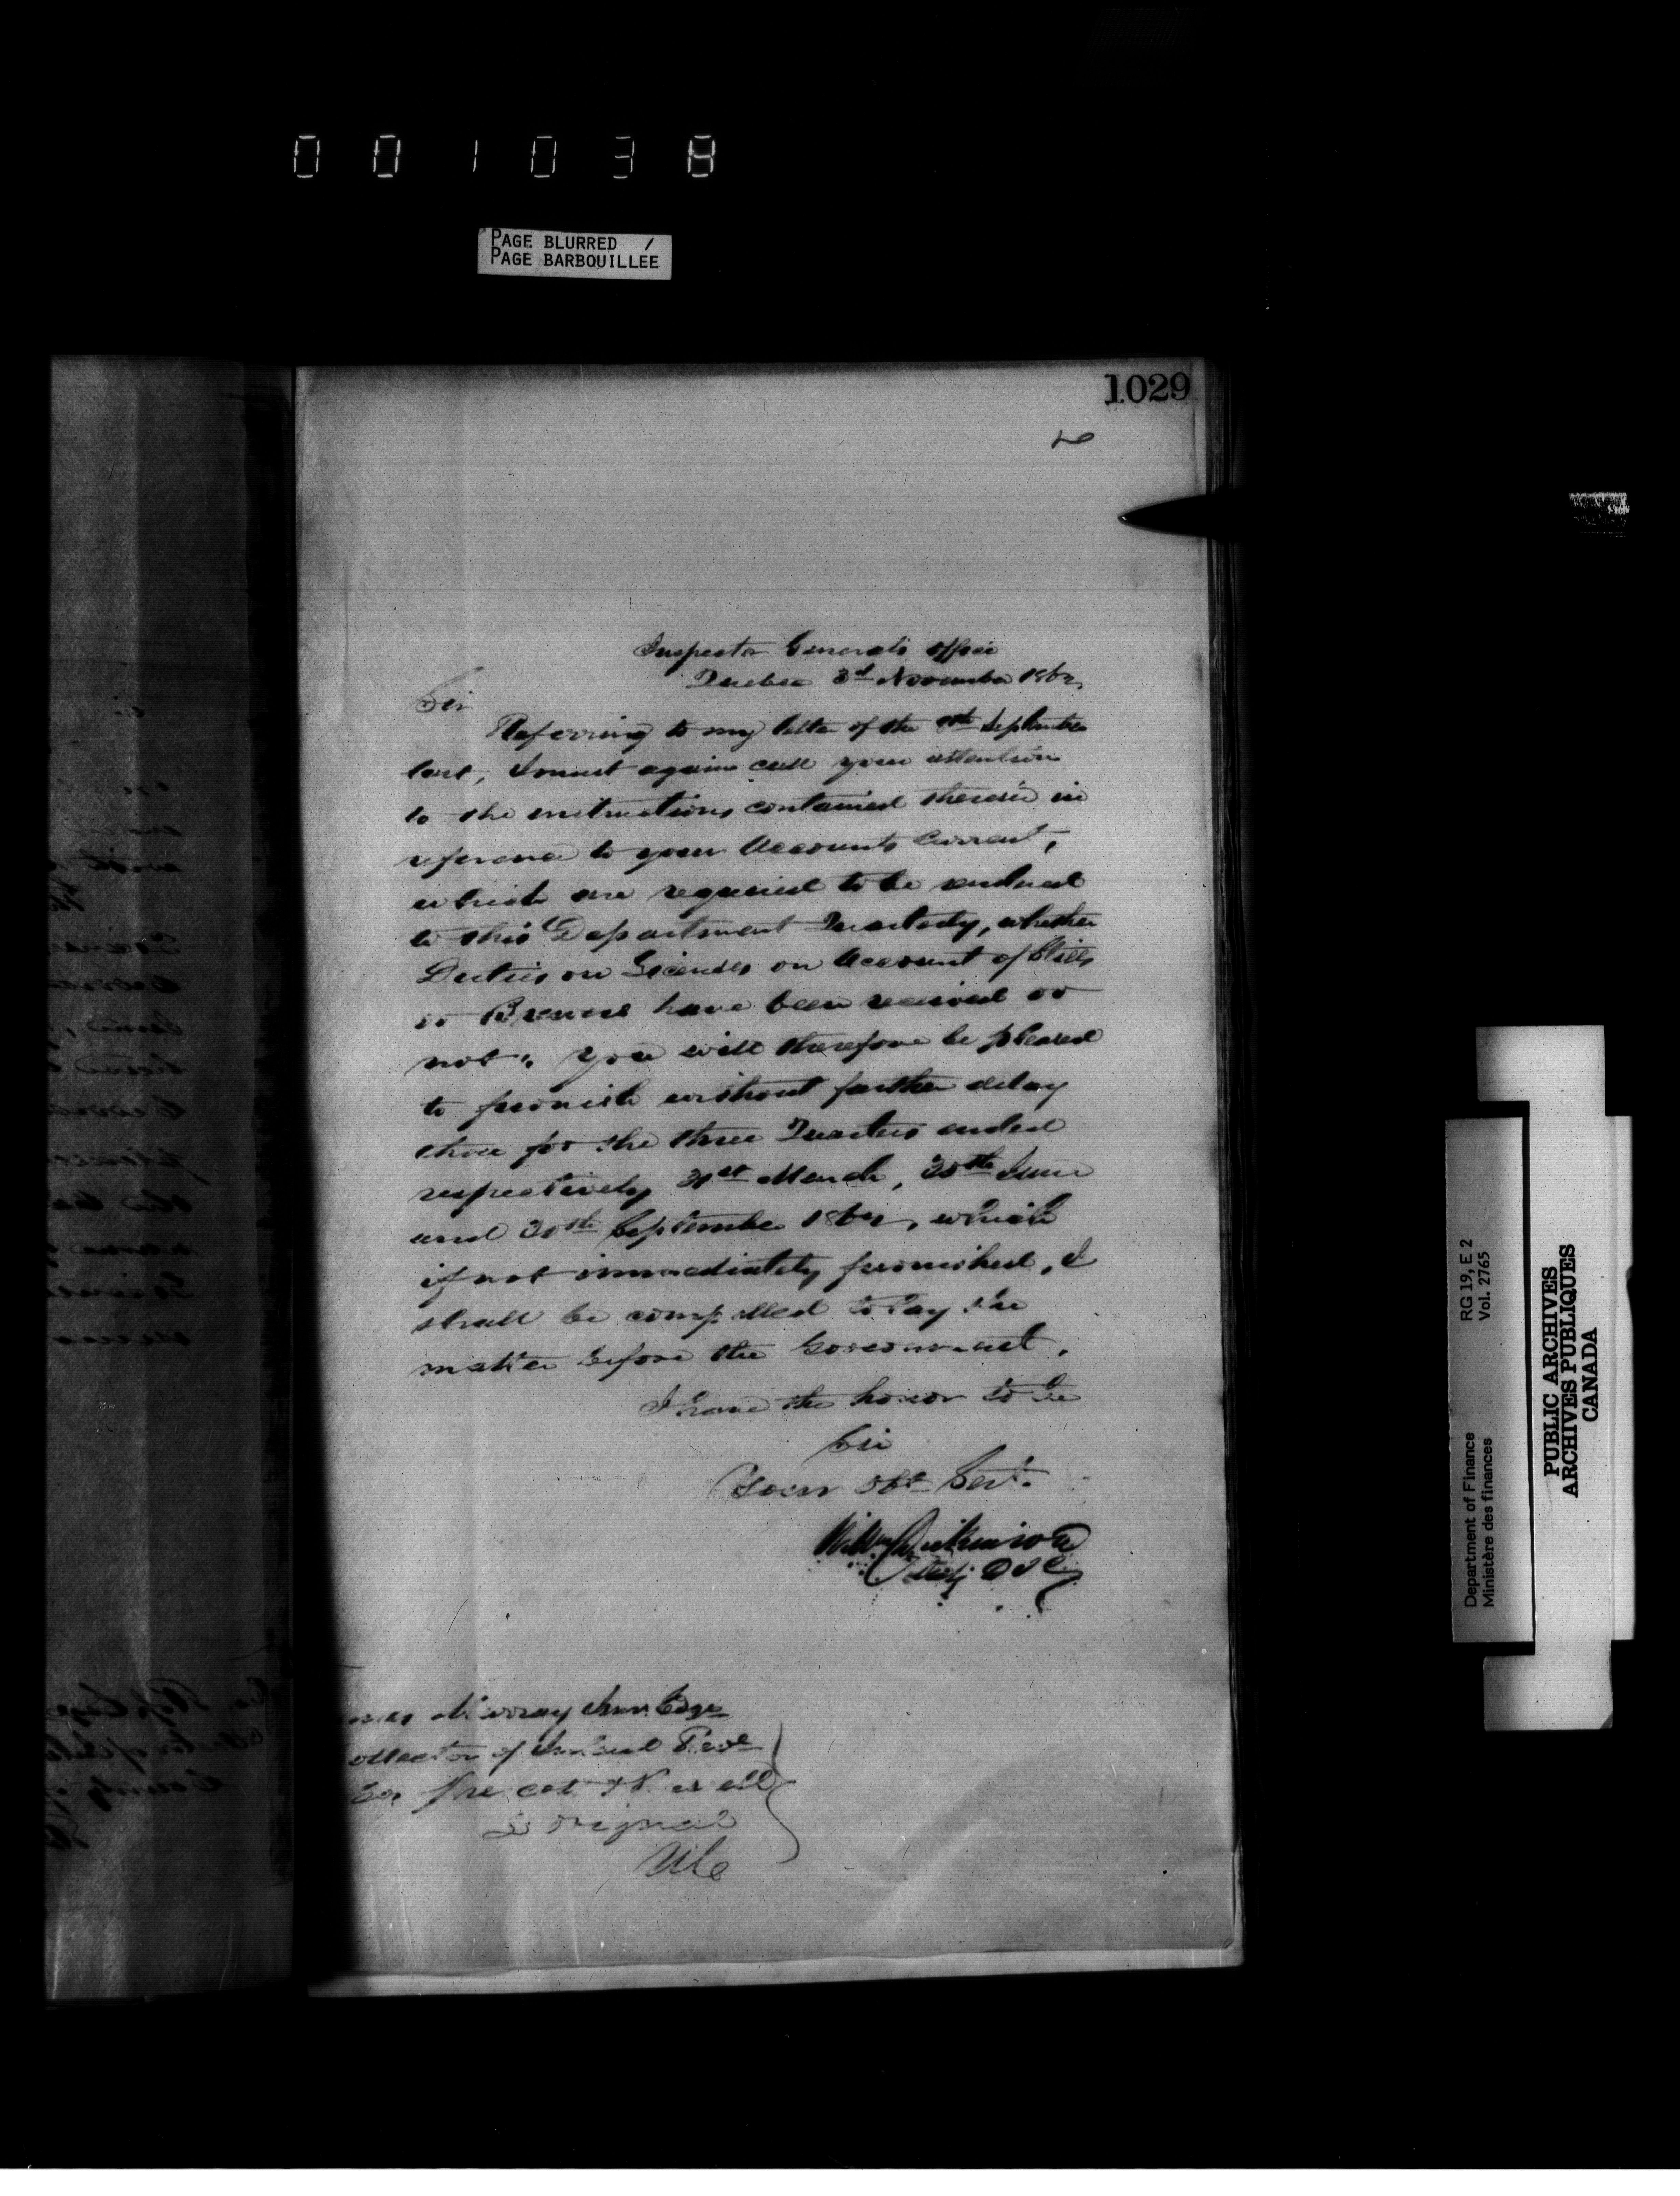 001038
PAGE BLURRED /
PAGE BARBOUILLEE
1029
Inspector Generals Office
Quebec 3rd November 1862
Sir
Referring to my letter of the September
last, I must again call your attention
to the instructions contained therein in
reference to your Accounts Current,
which are required to be rendered
to this Department Quarterly, whether
Duties on Licenses on Account of Stills
or Brewers have been received or
not. You will therefore be pleased
to furnish without further delay
those for the three Quarters ended
respectively 31st March, 30th June
and 30th September 1862, which
if not immediately furnished, I
shall be compelled to lay the
matter before the Government.
I have the honor to be
Sir
Your Obt Servt.
Wm Dickinson
Murray Junr. Esqr
ollector of Inland Reve
Co. Prescott & Russell
L'Orignal
UC
Department of Finance RG 19, E 2
Ministère des finances Vol. 2765
PUBLIC ARCHIVES
ARCHIVES PUBLIQUES
CANADA